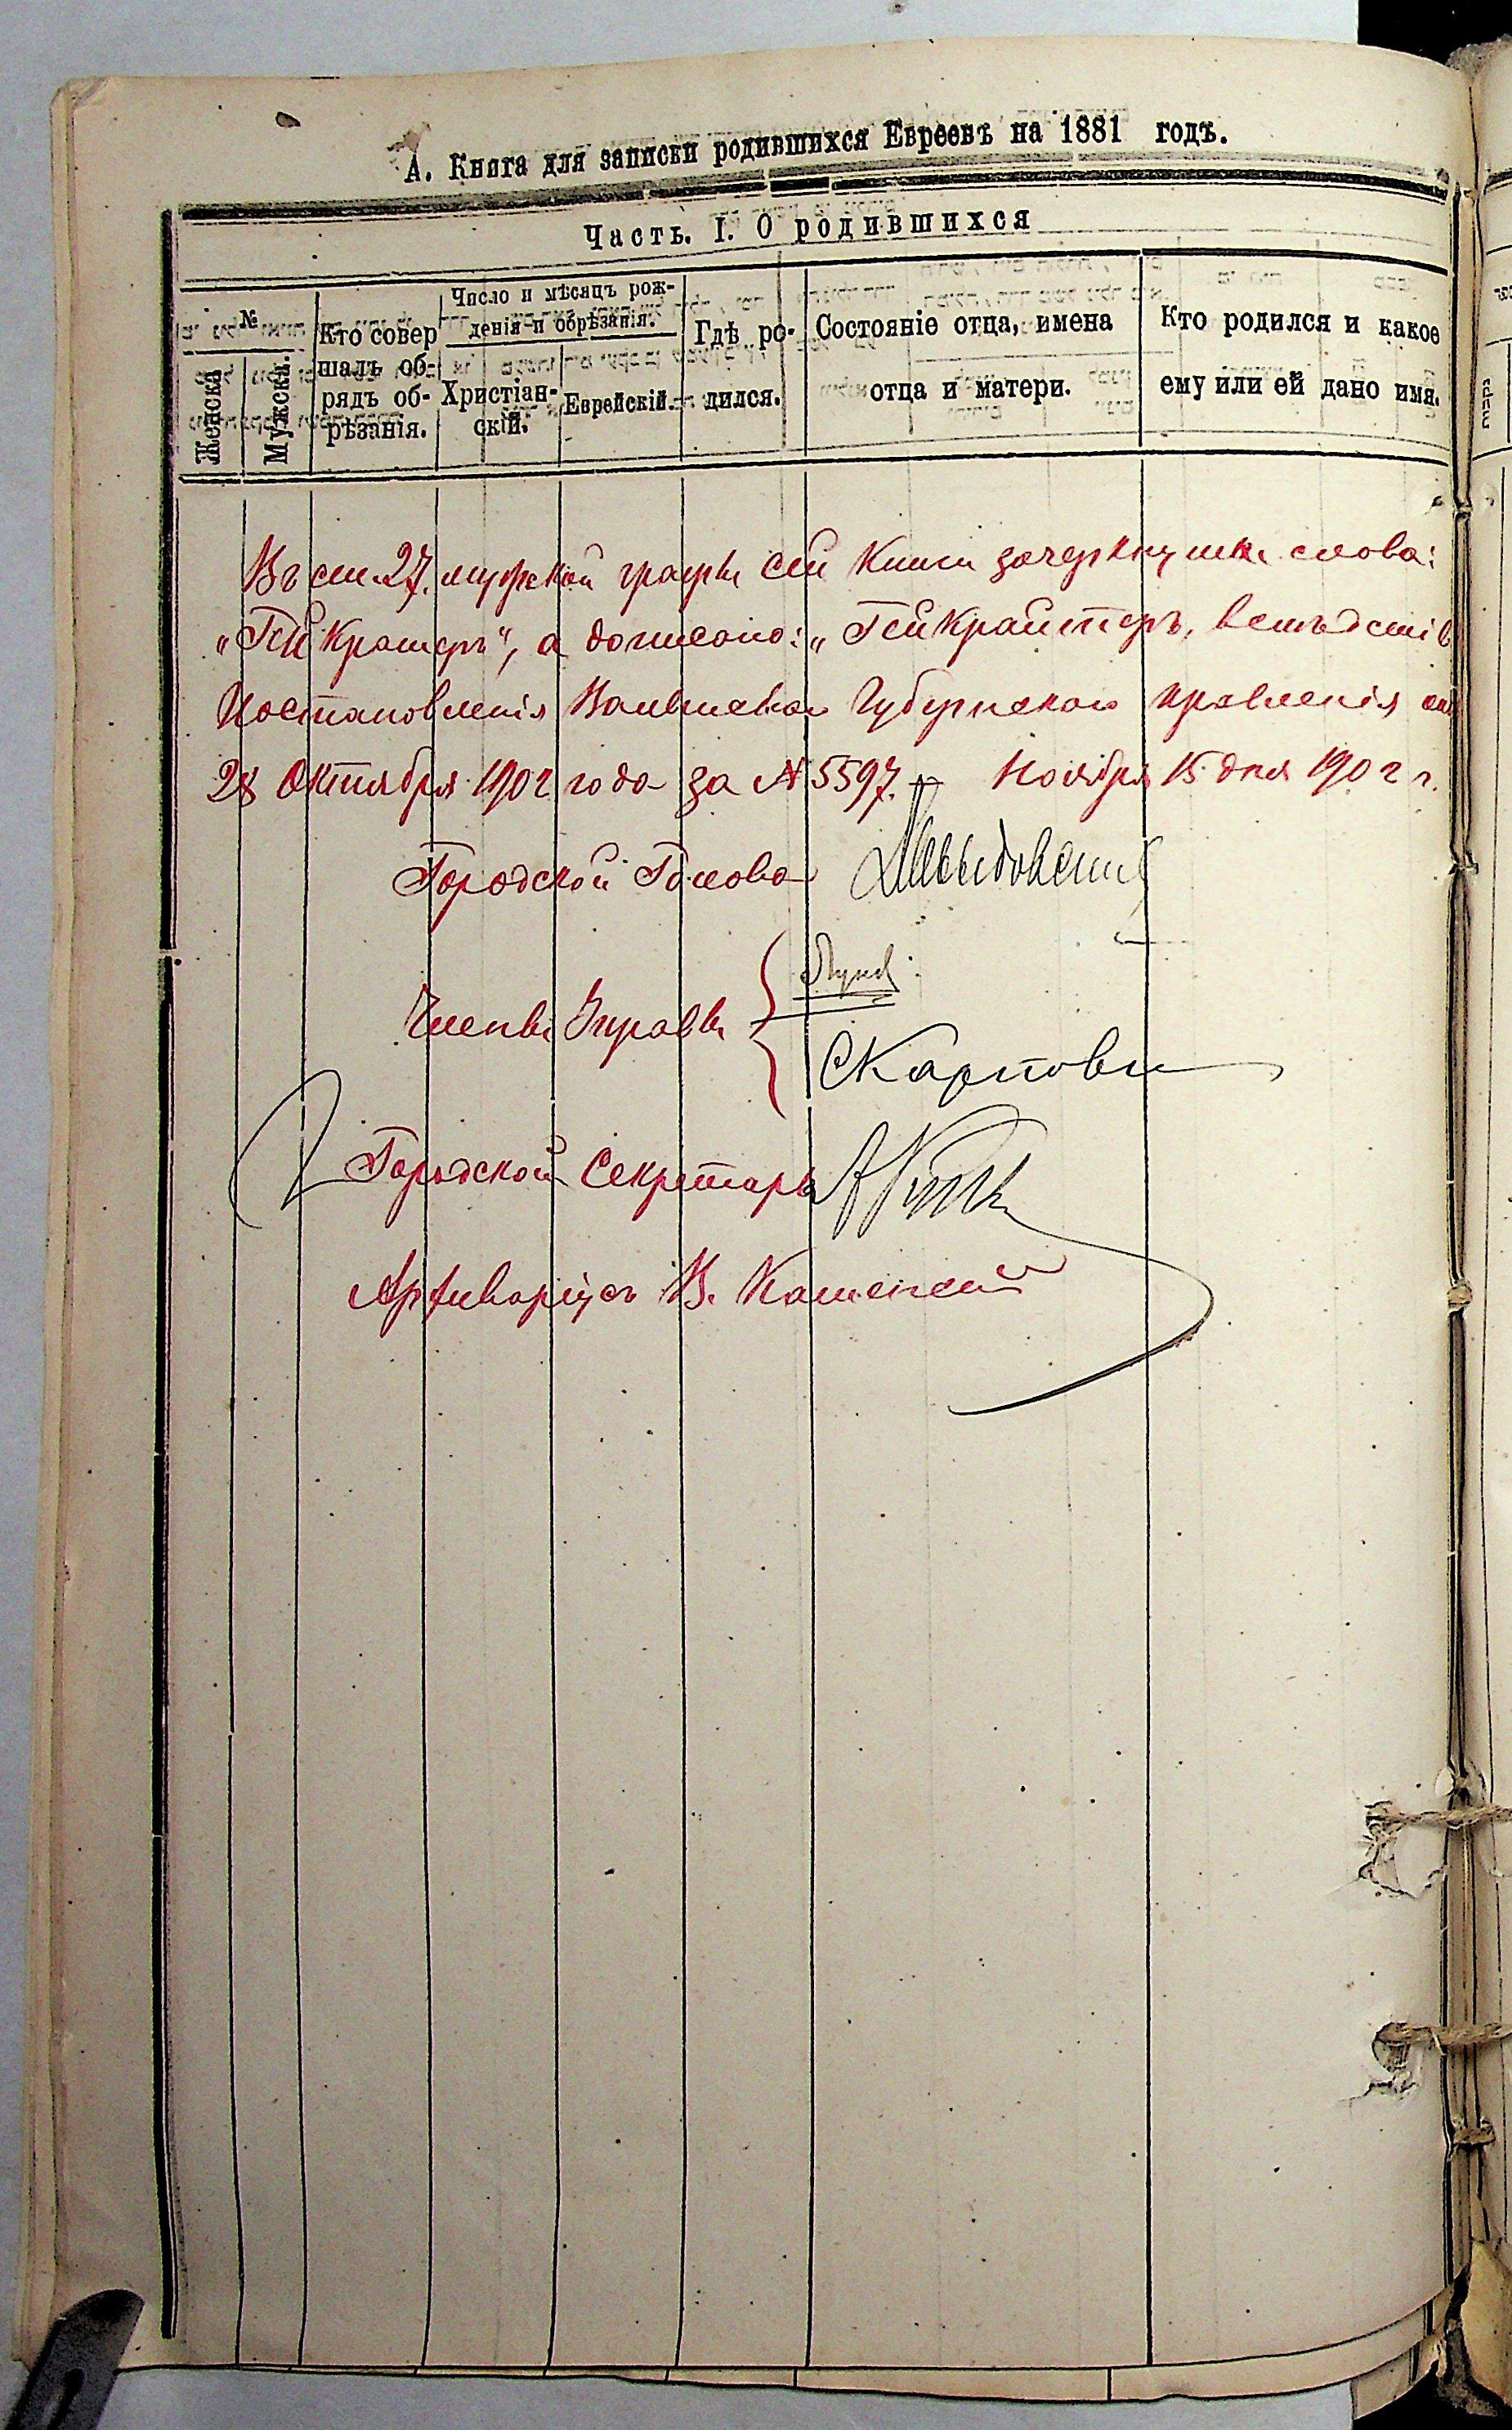 А. Книга для записки родившихся Евреевъ на 1881 годъ.
Часть. I. О родившихся
№
Женска
Мужска.
Кто совер
шалъ об-
рядъ об-
рѣзанія.
Число и мѣсяцъ рож-
денія и обрѣзанія.
Христіан-
скій.
Еврейскій.
Гдѣ ро-
дился.
Состояніе отца, имена
отца и матери.
Кто родился и какое
ему или ей дано имя.
Въ ст. 27. мужской графы сей Книги зачеркнуты слова:
„Гейкратеръ", а дописано: „Гейкрайтеръ, вслѣдств
Постановленія Волынскаго Губернскаго Правленія от
28 Октября 1902 года за № 5597. Ноября 15 дня 1902 г.
Городской Голова
Члены Управы
СКарпови
Городской Секретарь
Архиваріусъ В. Каменскій